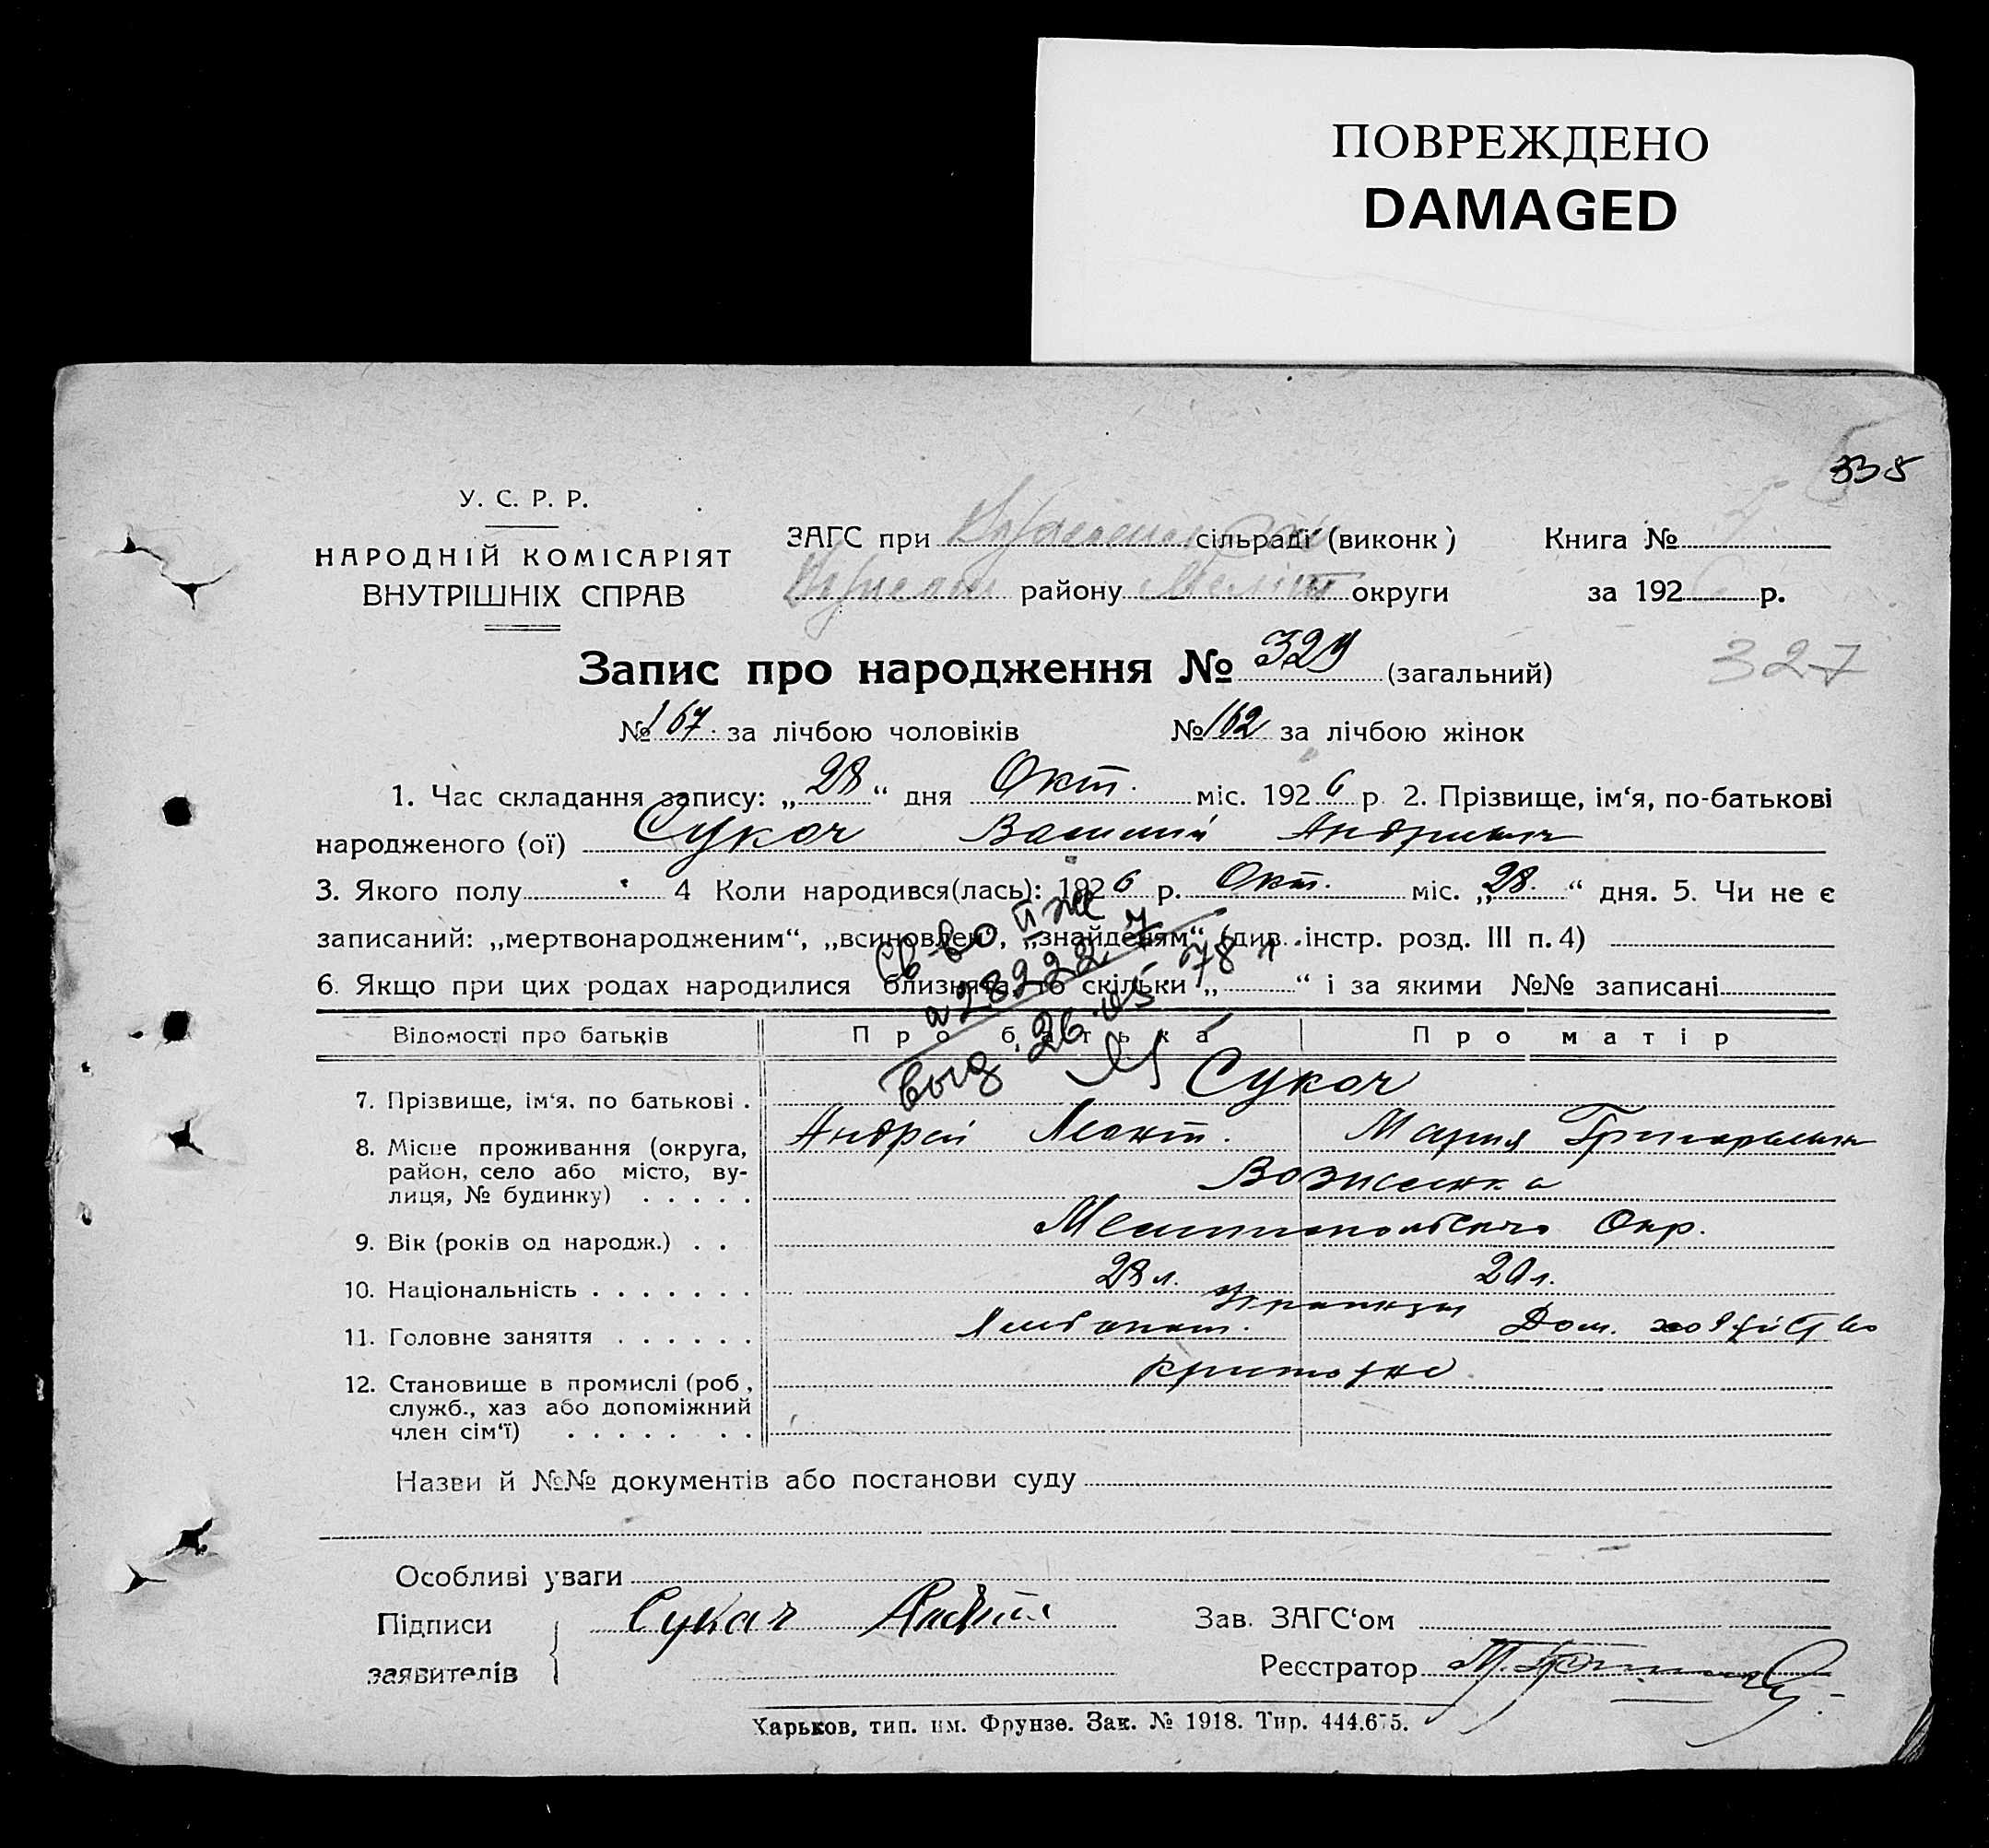 ПОВРЕЖДЕНО
DAMAGED
335
У. С. Р. Р.
НАРОДНІЙ КОМІСАРІЯТ
ВНУТРІШНІХ СПРАВ
ЗАГС при сільраді (виконк) Книга №
району Меліт округи за 192 р.
Запис про народження № 329 (загальний)
327
№ 167 за лічбою чоловіків № 162 за лічбою жінок
1. Час складання запису: „28“ дня Окт. міс. 1926 р. 2. Прізвище, ім‘я, по-батькові
народженого (ої) Сукоч Василий Андриевич
3. Якого полу 4 Коли народився(лась): 1926 р. Окт. міс. „28.“ дня. 5. Чи не є
записаний: „мертвонародженим“, „всиновлен“, „знайденям“ (див. інстр. розд. III п. 4)
6. Якщо при цих родах народилися близнята то скільки „ “ і за якими №№ записані
Св-во II ЖС
282227
выд. 26.05 78 г
Відомості про батьків Про батька Про матір
7. Прізвище, ім‘я, по батькові . Сукоч
Андрей Леонт. Мария Григорьевн
8. Місце проживання (округа,
район, село або місто, ву-
лиця, № будинку) . . . . . Вознесенка
9. Вік (років од народж.) . . Мелитопольского Окр.
10. Національність . . . . . . . 28 л. 20 л.
Украинцы
11. Головне заняття . . . . . . Хлебопаш. Дом. хозяйство
12. Становище в промислі (роб.,
служб., хаз або допоміжний
член сім‘ї) . . . . . . . .
Назви й №№ документів або постанови суду
Особливі уваги
Підписи
заявителів Сукач
Зав. ЗАГС‘ом
Реєстратор
Харьков, тип. им. Фрунзе. Зак. № 1918. Тир. 444.675.